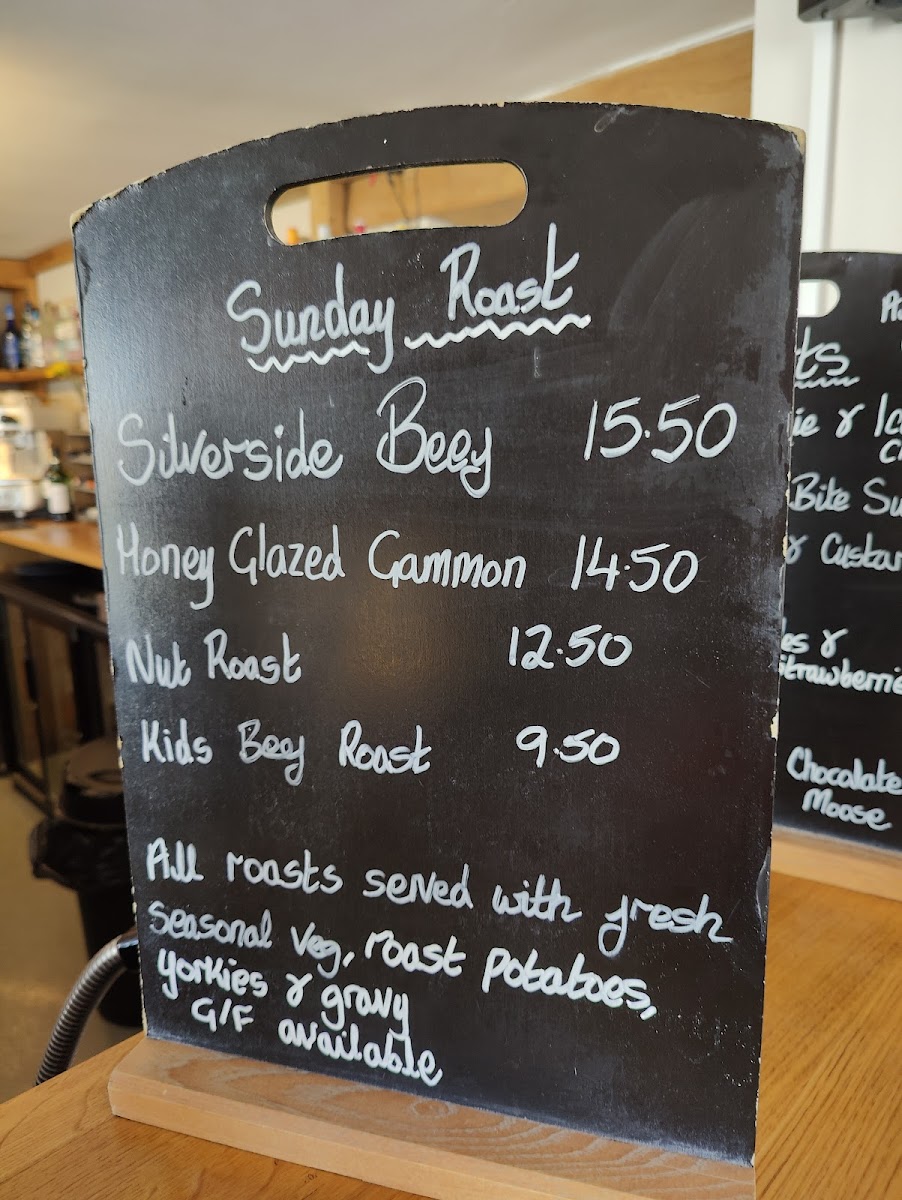 Sunday Roast
Silverside Beef 15.50
Honey Glazed Gammon 14.50
Nut Roast 12.50
Kids Beef Roast 9.50
All roasts served with fresh
seasonal veg, roast potatoes,
yorkies & gravy
G/F available
ts
ie & Ice
Bite Su
& Custar
es &
strawberrie
Chocolate
Moose